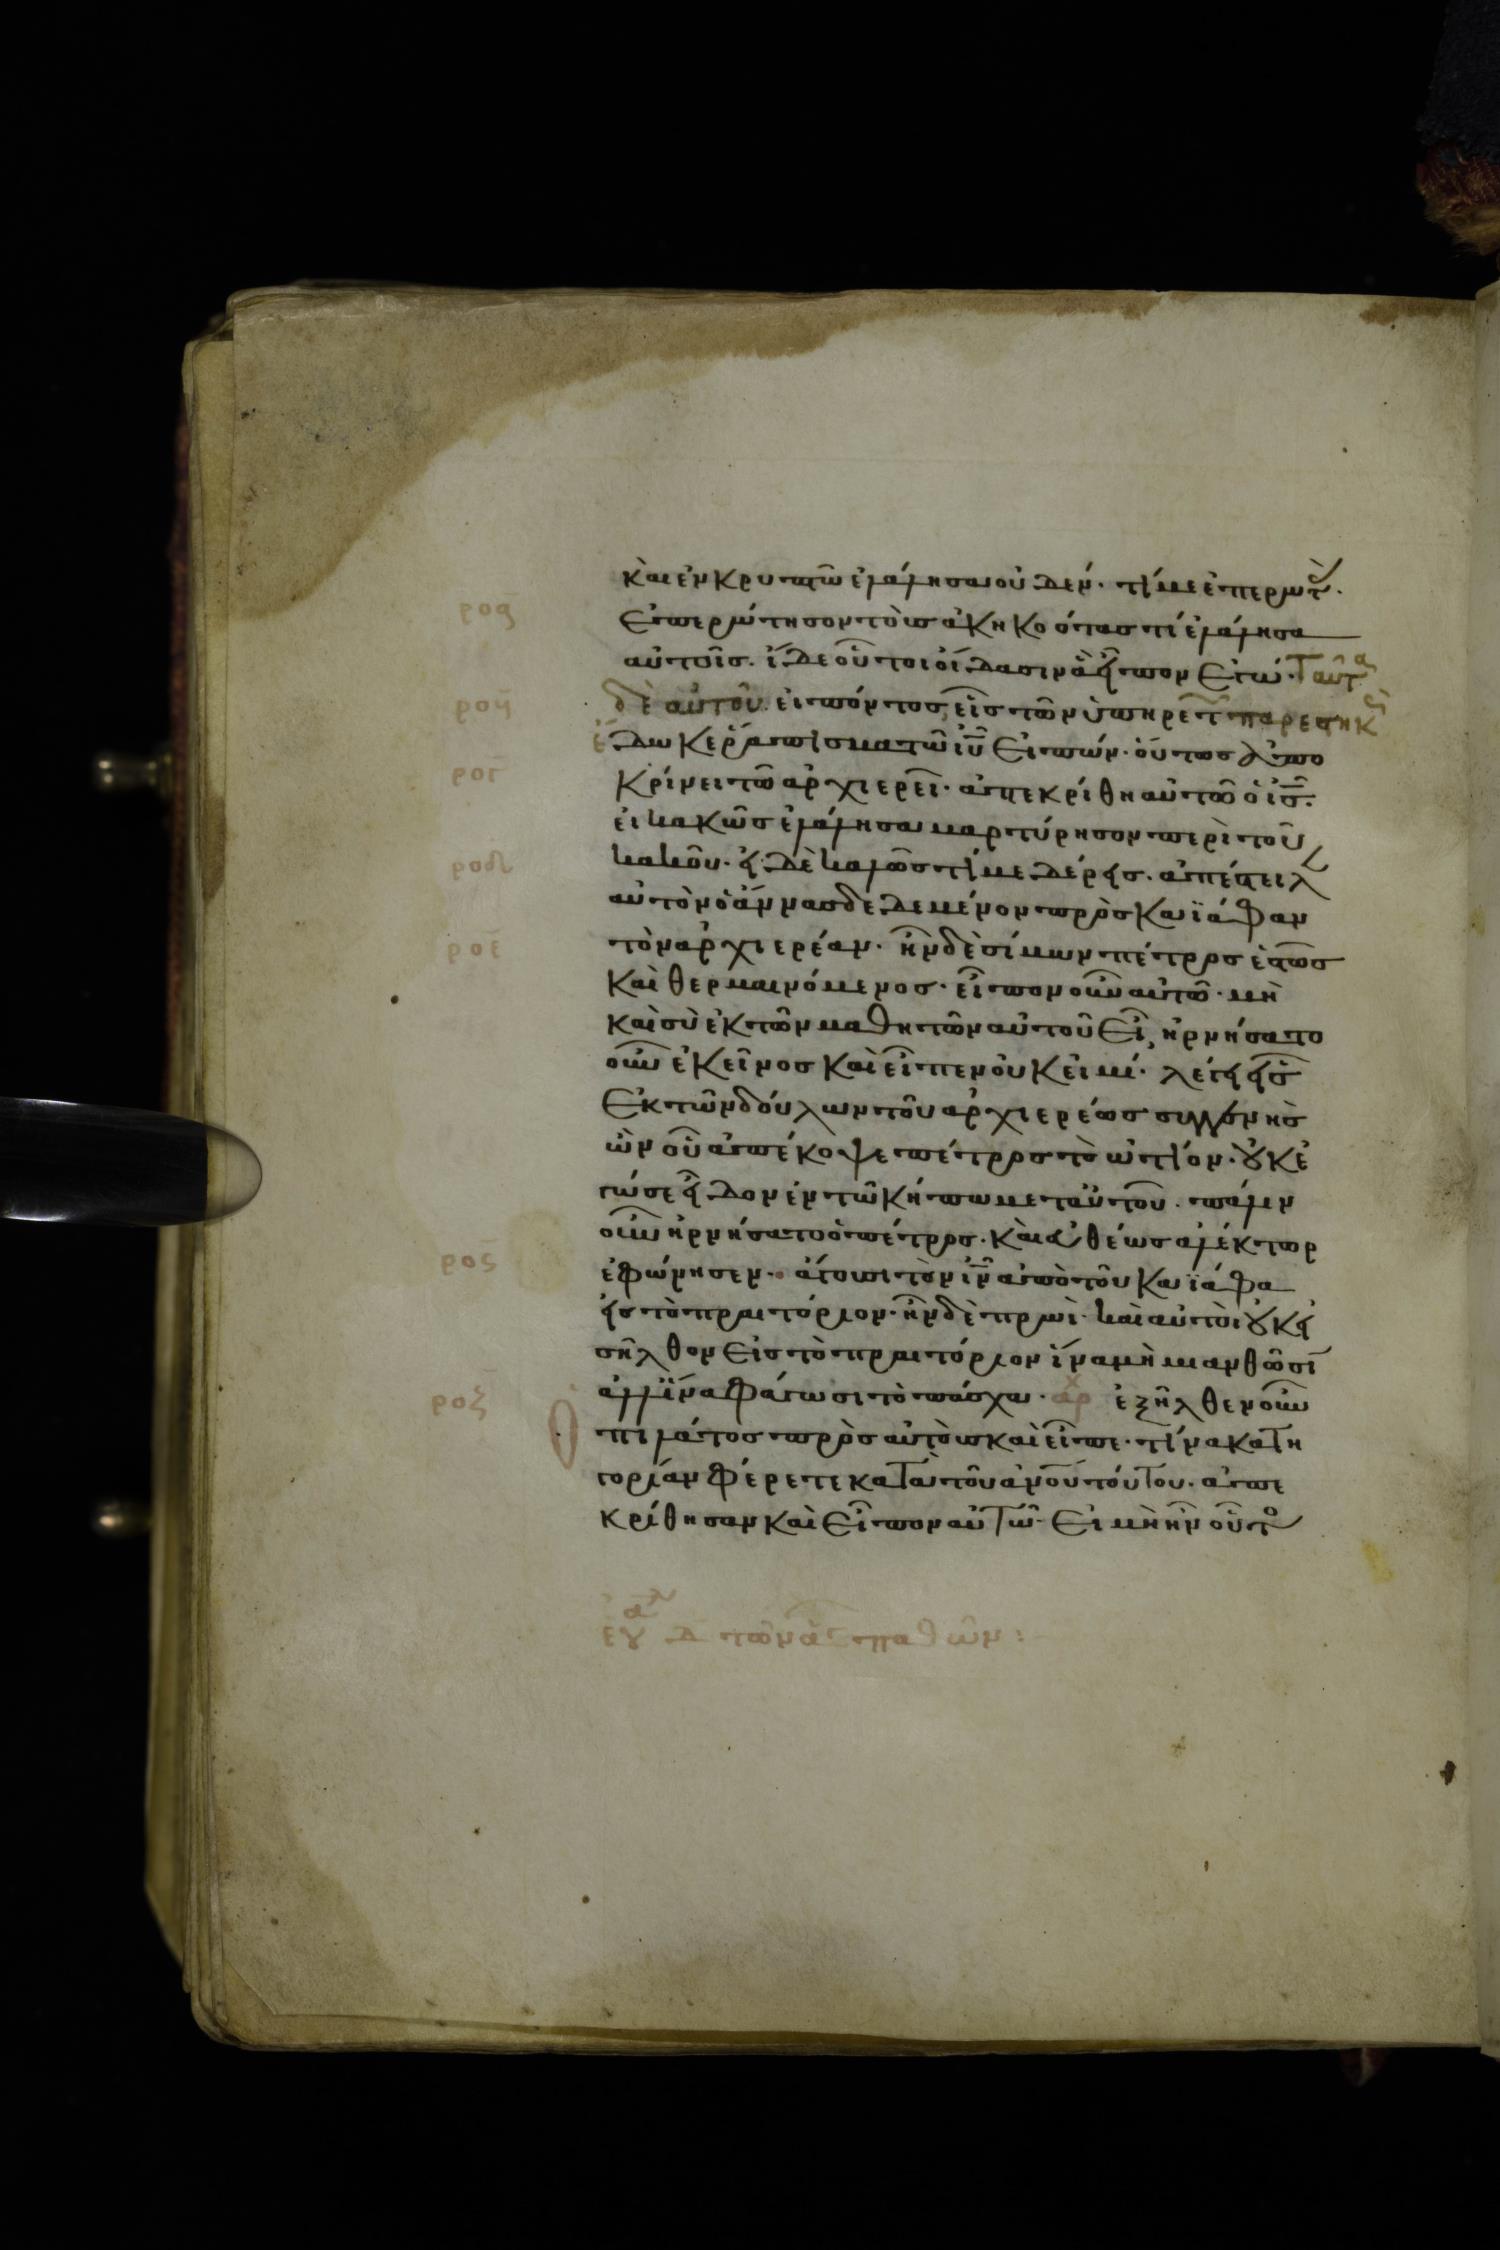 καὶ ἐν κρυπτῶ ἐλάλησα οὐδέν· τί με ἐπερωτ(ᾶς)·
ἐπερώτησον τοὺς ἀκηκοότας τί ἐλάλησα
αὐτοῖς. ἴδε οὗτοι οἴδασιν ἃ εἶπον ἐγώ· ταῦτα
δὲ αὐτοῦ εἰπόντος, εἷς τῶν ὑπηρετ παρεστηκὼς
ἔδωκε ῥάπισμα τῶ ἰῦ εἰπών· οὕτως ἀπο
κρίνει τῶ ἀρχιερεῖ· ἀπεκρίθη αὐτῶ ὁ ἰς·
εἰ κακῶς ἐλάλησα μαρτύρησον περὶ τοῦ
κακοῦ· εἰ δὲ καλῶς τί με δέρεις· ἀπέστειλ
αὐτὸν ὁ ἄννας δεδεμένον πρὸς καϊάφαν
τὸν ἀρχιερέαν· ἦν δὲ σίμων πέτρος ἑστὼς
καὶ θερμαινόμενος· εἶπον οὖν αὐτῶ· μὴ
καὶ σὺ ἐκ τῶν μαθητῶν αὐτοῦ εἶ, ἠρνήσατο
οὖν ἐκεῖνος καὶ εἶπεν οὐκ εἰμί· λέγει εἷς
ἐκ τῶν δούλων τοῦ ἀρχιερέως συγγενὴς
ὢν οὗ ἀπέκοψε πέτρος τὸ ὠτίον· οὐκ ἐ
γώ σε εἶδον ἐν τῶ κήπω μετ αὐτοῦ· πάλιν
οὖν ἠρνήσατο ὁ πέτρος· καὶ εὐθέως ἀλέκτωρ
ἐφώνησεν· ἄγουσι τὸν ἰν ἀπὸ τοῦ καϊάφα
εἰς τὸ πραιτόριον· ἦν δὲ πρωὶ· καὶ αὐτοὶ οὐκ εἰ
σῆλθον εἰς τὸ πραιτόριον ἵνα μὴ μιανθῶσι
ἀλλ ἵνα φάγωσι τὸ πάσχα· αρχ ἐξῆλθεν οὖν
ὁ πιλάτος πρὸς αὐτοὺς καὶ εἶπε· τίνα κατη
γορίαν φέρετε κατὰ τοῦ ἀνου τούτου· ἀπε
κρίθησαν καὶ εἶπον αὐτῶ· εἰ μὴ ἦν οὗτο
ροδ
ροη
ροε
ροϛ
ροζ